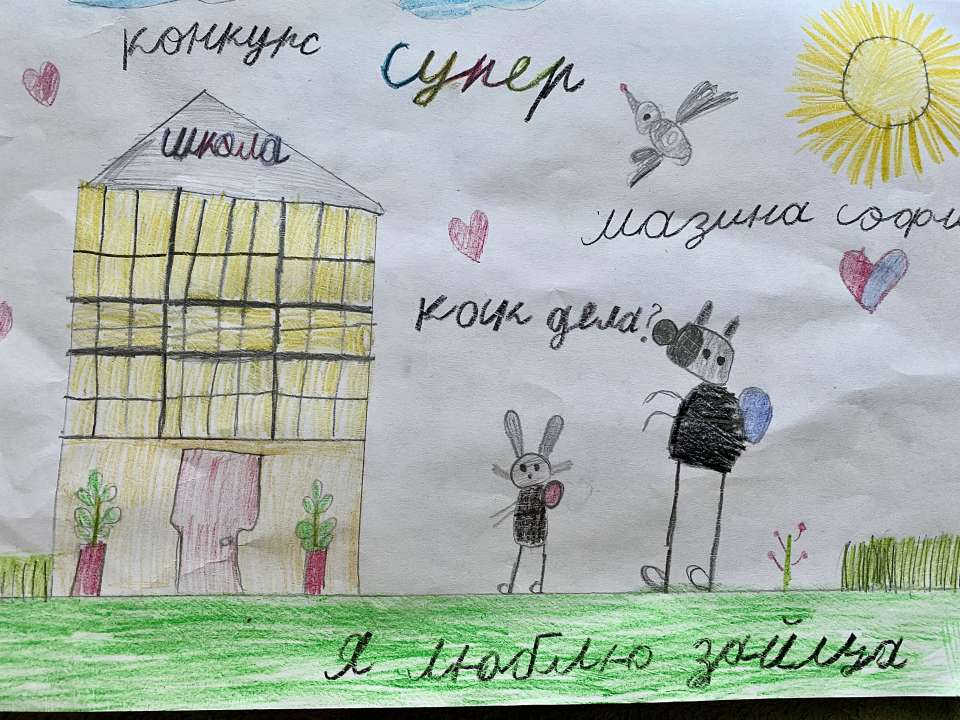 конкурс
супер
школа
мазина софи
как дела?
Я люблю зайца